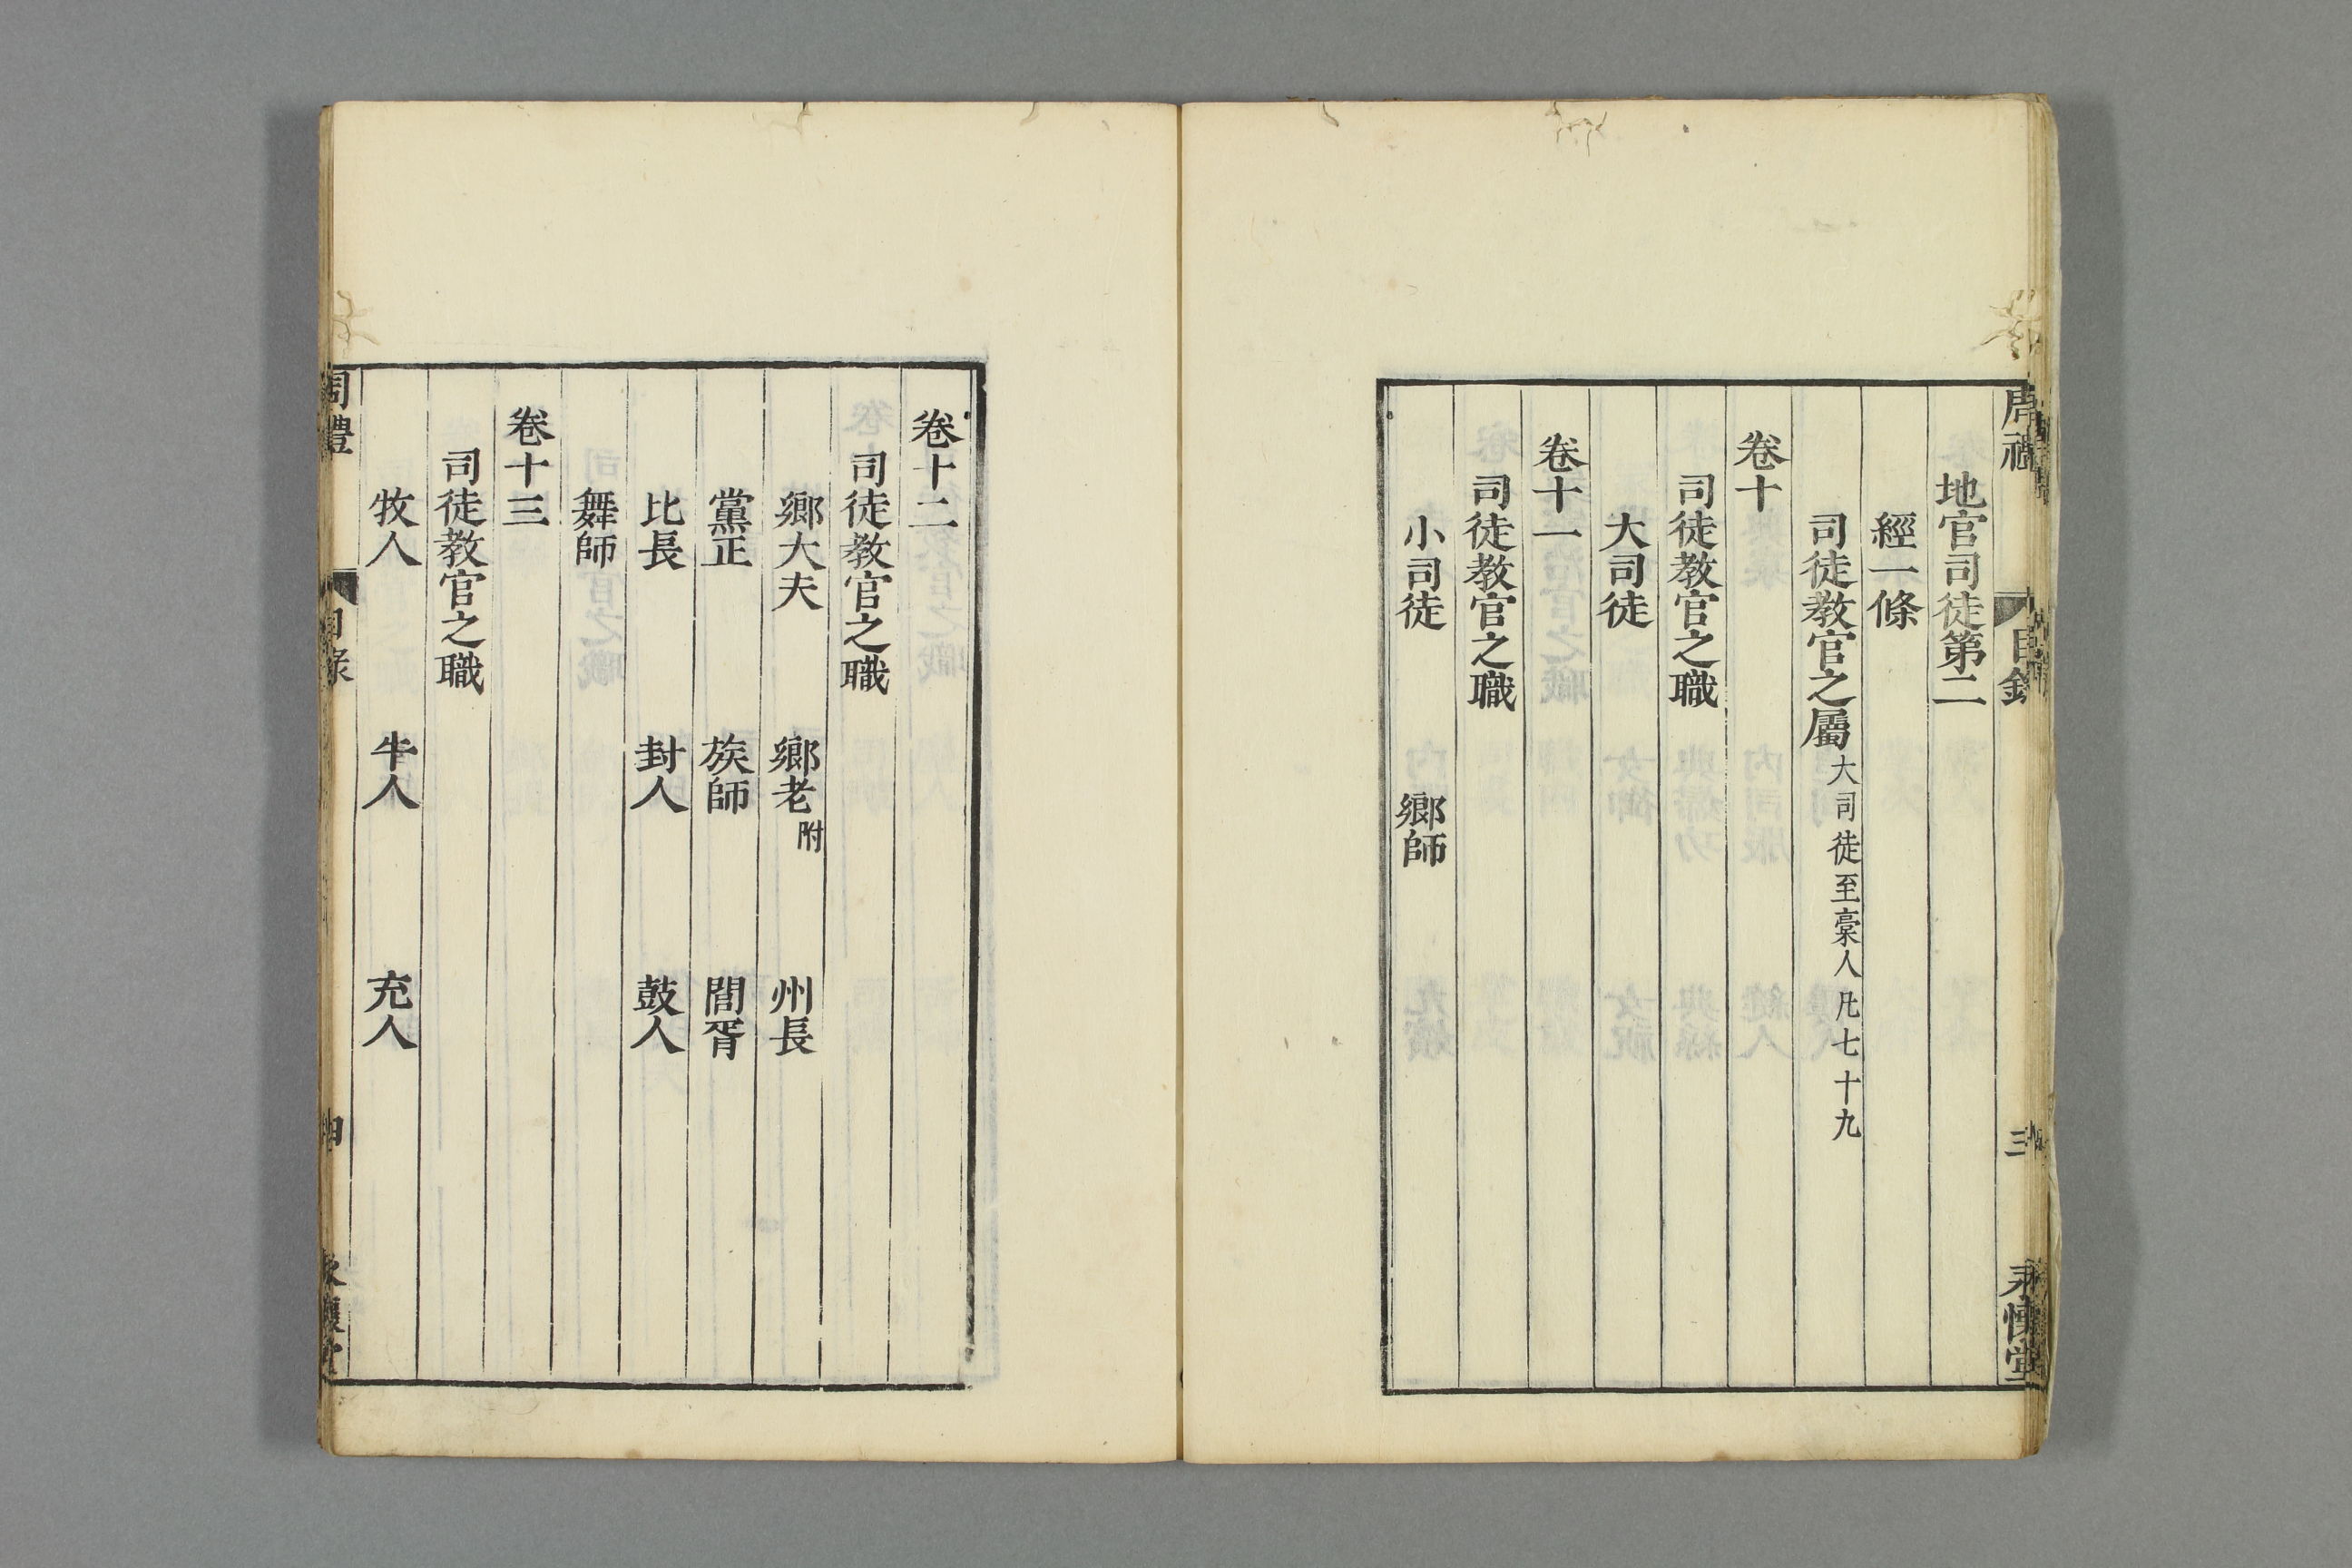 周禮 目錄 三 永懷堂
地官司徒第二
經一條
司徒教官之屬大司徒至槀人凡七十九
卷十
司徒教官之職
大司徒
卷十一
司徒教官之職
小司徒 鄉師
卷十二
司徒教官之職
鄉大夫 鄉老附 州長
黨正 族師 閭胥
比長 封人 鼓人
舞師
卷十三
司徒教官之職
牧人 牛人 充人
周禮 目錄 四 永懷堂